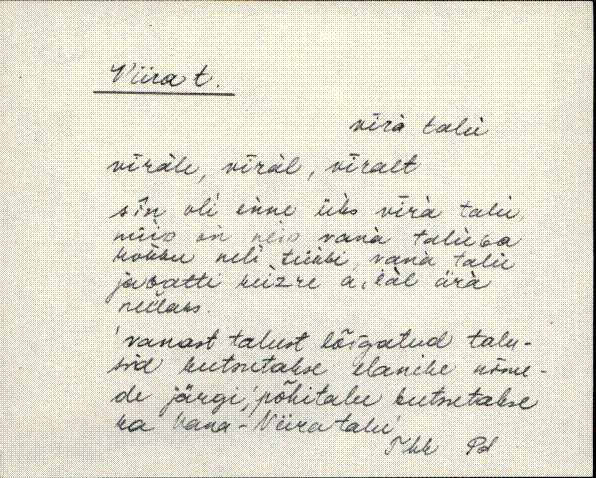 Viira t.
vīrà talu
vīràle, vīràl, vīralt
sīn oli enne üks vīrà talu,
nüid on neid vanà taluga
kokku neli tükki, vanà talu
jagatti keizre aial ärà
neljaks.
'vanast talust lõigatud talu-
sid kutsutakse elanike nime-
de järgi,' põhitalu kutsutakse
ka 'Vana-Viira talu'
Pd